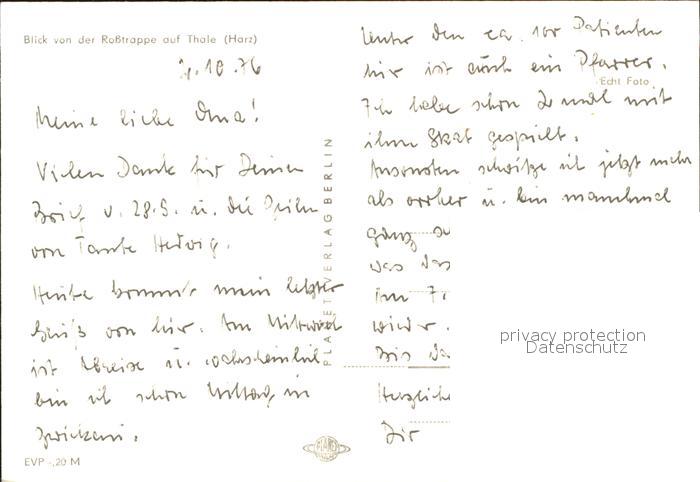 Blick von der Roßtrappe auf Thale (Harz)
2.10.76
Meine liebe Oma!
Vielen Dank für Deinen
Brief v. 28.9. u. die Zeilen
von Tante Hedwig.
Heute kommt mein letzter
Gruß von hier. Am Mittwoch
ist Abreise u. wahrscheinlich
bin ich schon Mittag in
Zwickau.
EVP -,20 M
PLANET-VERLAG BERLIN
PLANET
Unter den ca. 100 Patienten
hier ist auch ein Pfarrer.
Echt Foto
Ich habe schon 2 mal mit
ihm Skat gespielt.
Ansonsten schwitze ich jetzt mehr
als vorher u. bin manchmal
ganz
was das
Am 7.
wieder.
Bis
Herzliche
Dir
privacy protection
Datenschutz